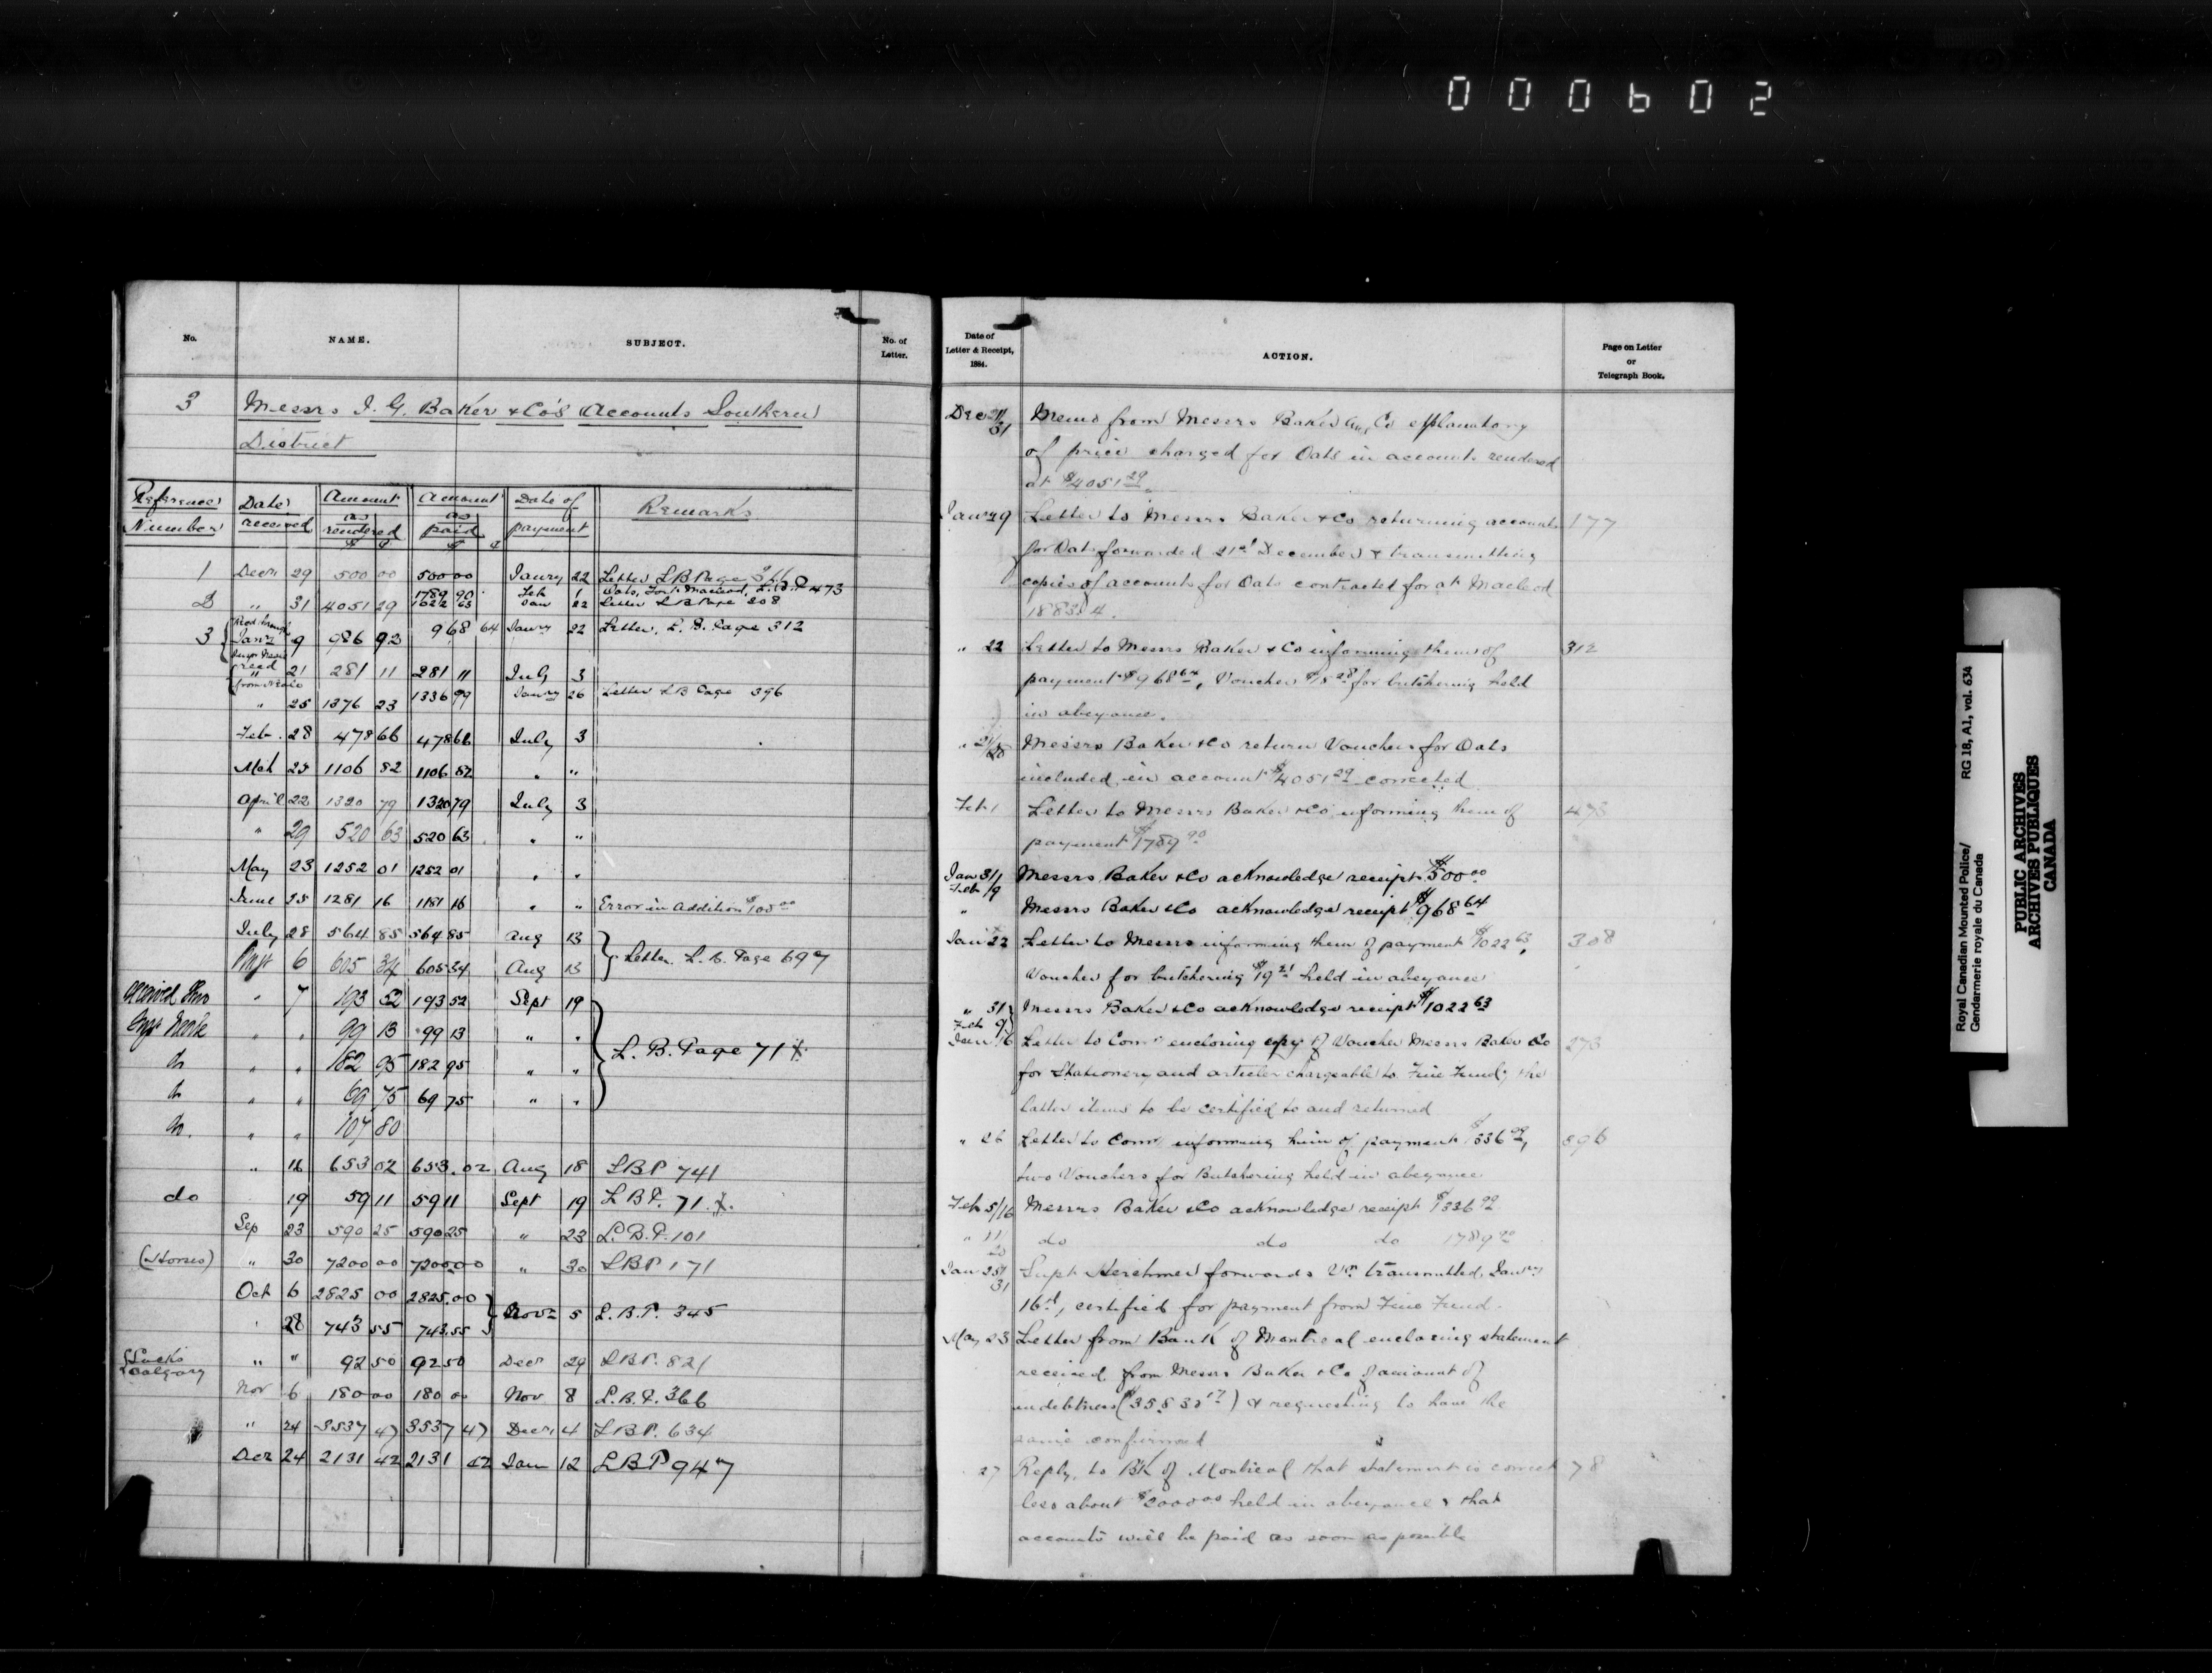 000602
No.
NAME.
SUBJECT.
No. of
Letter.
3 Messrs I. G. Baker & Co's Accounts Southern
District
Reference Number
Date received
Amount as rendered $ ¢
Amount as paid $ ¢
Date of payment
Remarks
1 Decr 29 500 00 500 00 Janry 22 Letter LB Page
1789 90 Feb 1 Oats, Fort Macleod, 473
2 " 31 4051 29 1022 63 Jan 22 Letter LB Page 308
3 Recd through Janry 9 986 92 968 64 Janry 22 Letter, L. B. Page 312
" 21 281 11 281 11 July 3
" 25 1376 23 1336 99 Janry 26 Letter LB Page 396
Feb. 28 478 66 478 66 July 3
Mch 25 1106 82 1106 82 " "
April 22 1320 79 1320 79 July 3
" 29 520 63 520 63 " "
May 23 1252 01 1252 01 " "
June 25 1281 16 1181 16 " " Error in Addition $100 00
July 28 564 85 564 85 Aug 13
6 605 34 605 34 Aug 13 Letter L. B. Page 697
" 7 193 52 193 52 Sept 19
" " 99 13 99 13 " "
" " 182 95 182 95 " " L. B. Page 71
" " 69 75 69 75 " "
" " 107 80
" 16 653 02 653.02 Aug 18 LBP 741
do 19 59 11 59 11 Sept 19 L B P. 71
Sep 23 590 25 590 25 " 23 L.B.P. 101
(Horses) " 30 7200 00 7200 00 " 30 LBP 171
Oct 6 2825 00 2825.00
" 28 743 55 743.55 Novr 5 L.B.P. 345
Calgary " " 92 50 92 50 Decr 29 LBP. 821
Nov 6 180 00 180 00 Nov 8 L.B.P. 366
" 24 3537 47 3537 47 Decr 4 LBP. 634
Decr 24 2131 42 2131 42 Jan 12 LBP 947
Date of
Letter & Receipt,
1884.
ACTION.
Page on Letter
or
Telegraph Book.
Dec 21/31 Memo from Messrs Baker and Co explanatory
of price charged for Oats in accounts rendered
at $4051 29
Janry 9 Letter to Messrs Baker & Co returning accounts 177
for Oats forwarded 21st December & transmitting
copies of accounts for Oats contracted for at Macleod
1883.4.
" 22 Letter to Messrs Baker & Co informing them of 312
payment $968 64, Voucher $18 28 for butchering held
in abeyance.
Messrs Baker & Co return Vouchers for Oats
included in account $4051 29 corrected
Feb 1 Letter to Messrs Baker & Co informing them of 473
payment $1789 90
Jan 31/ Feb 9 Messrs Baker & Co acknowledge receipt $500 00
" Messrs Baker & Co acknowledge receipt $968 64
Jan 22 Letter to Messrs informing them of payment $1022 63, 308
Voucher for butchering $19 21 held in abeyance
" 31 Feb 9 Messrs Baker & Co acknowledge receipt $1022 63
Jan 16 Letter to Comr enclosing copy of Voucher Messrs Baker & Co 273
for Stationery and articles chargeable to Fine Fund, the
latter items to be certified to and returned
" 26 Letter to Comr informing him of payment $1336 99, 396
two Vouchers for Butchering held in abeyance.
Feb 5/16 Messrs Baker & Co acknowledge receipt $1336 99
" 11/20 do do do 1789 90
Jan 25/31 Supt Herchmer forwards Vr transmitted, Janry
16th, certified for payment from Fine Fund.
May 23 Letter from Bank of Montreal enclosing statement
received from Messrs Baker & Co of amount of
indebtness & requesting to have the
same confirmed
27 Reply, to Bk of Montreal that statement is correct 78
less about $2000 00 held in abeyance & that
accounts will be paid as soon as possible
Royal Canadian Mounted Police/
Gendarmerie royale du Canada
RG 18, A1, vol. 634
PUBLIC ARCHIVES
ARCHIVES PUBLIQUES
CANADA